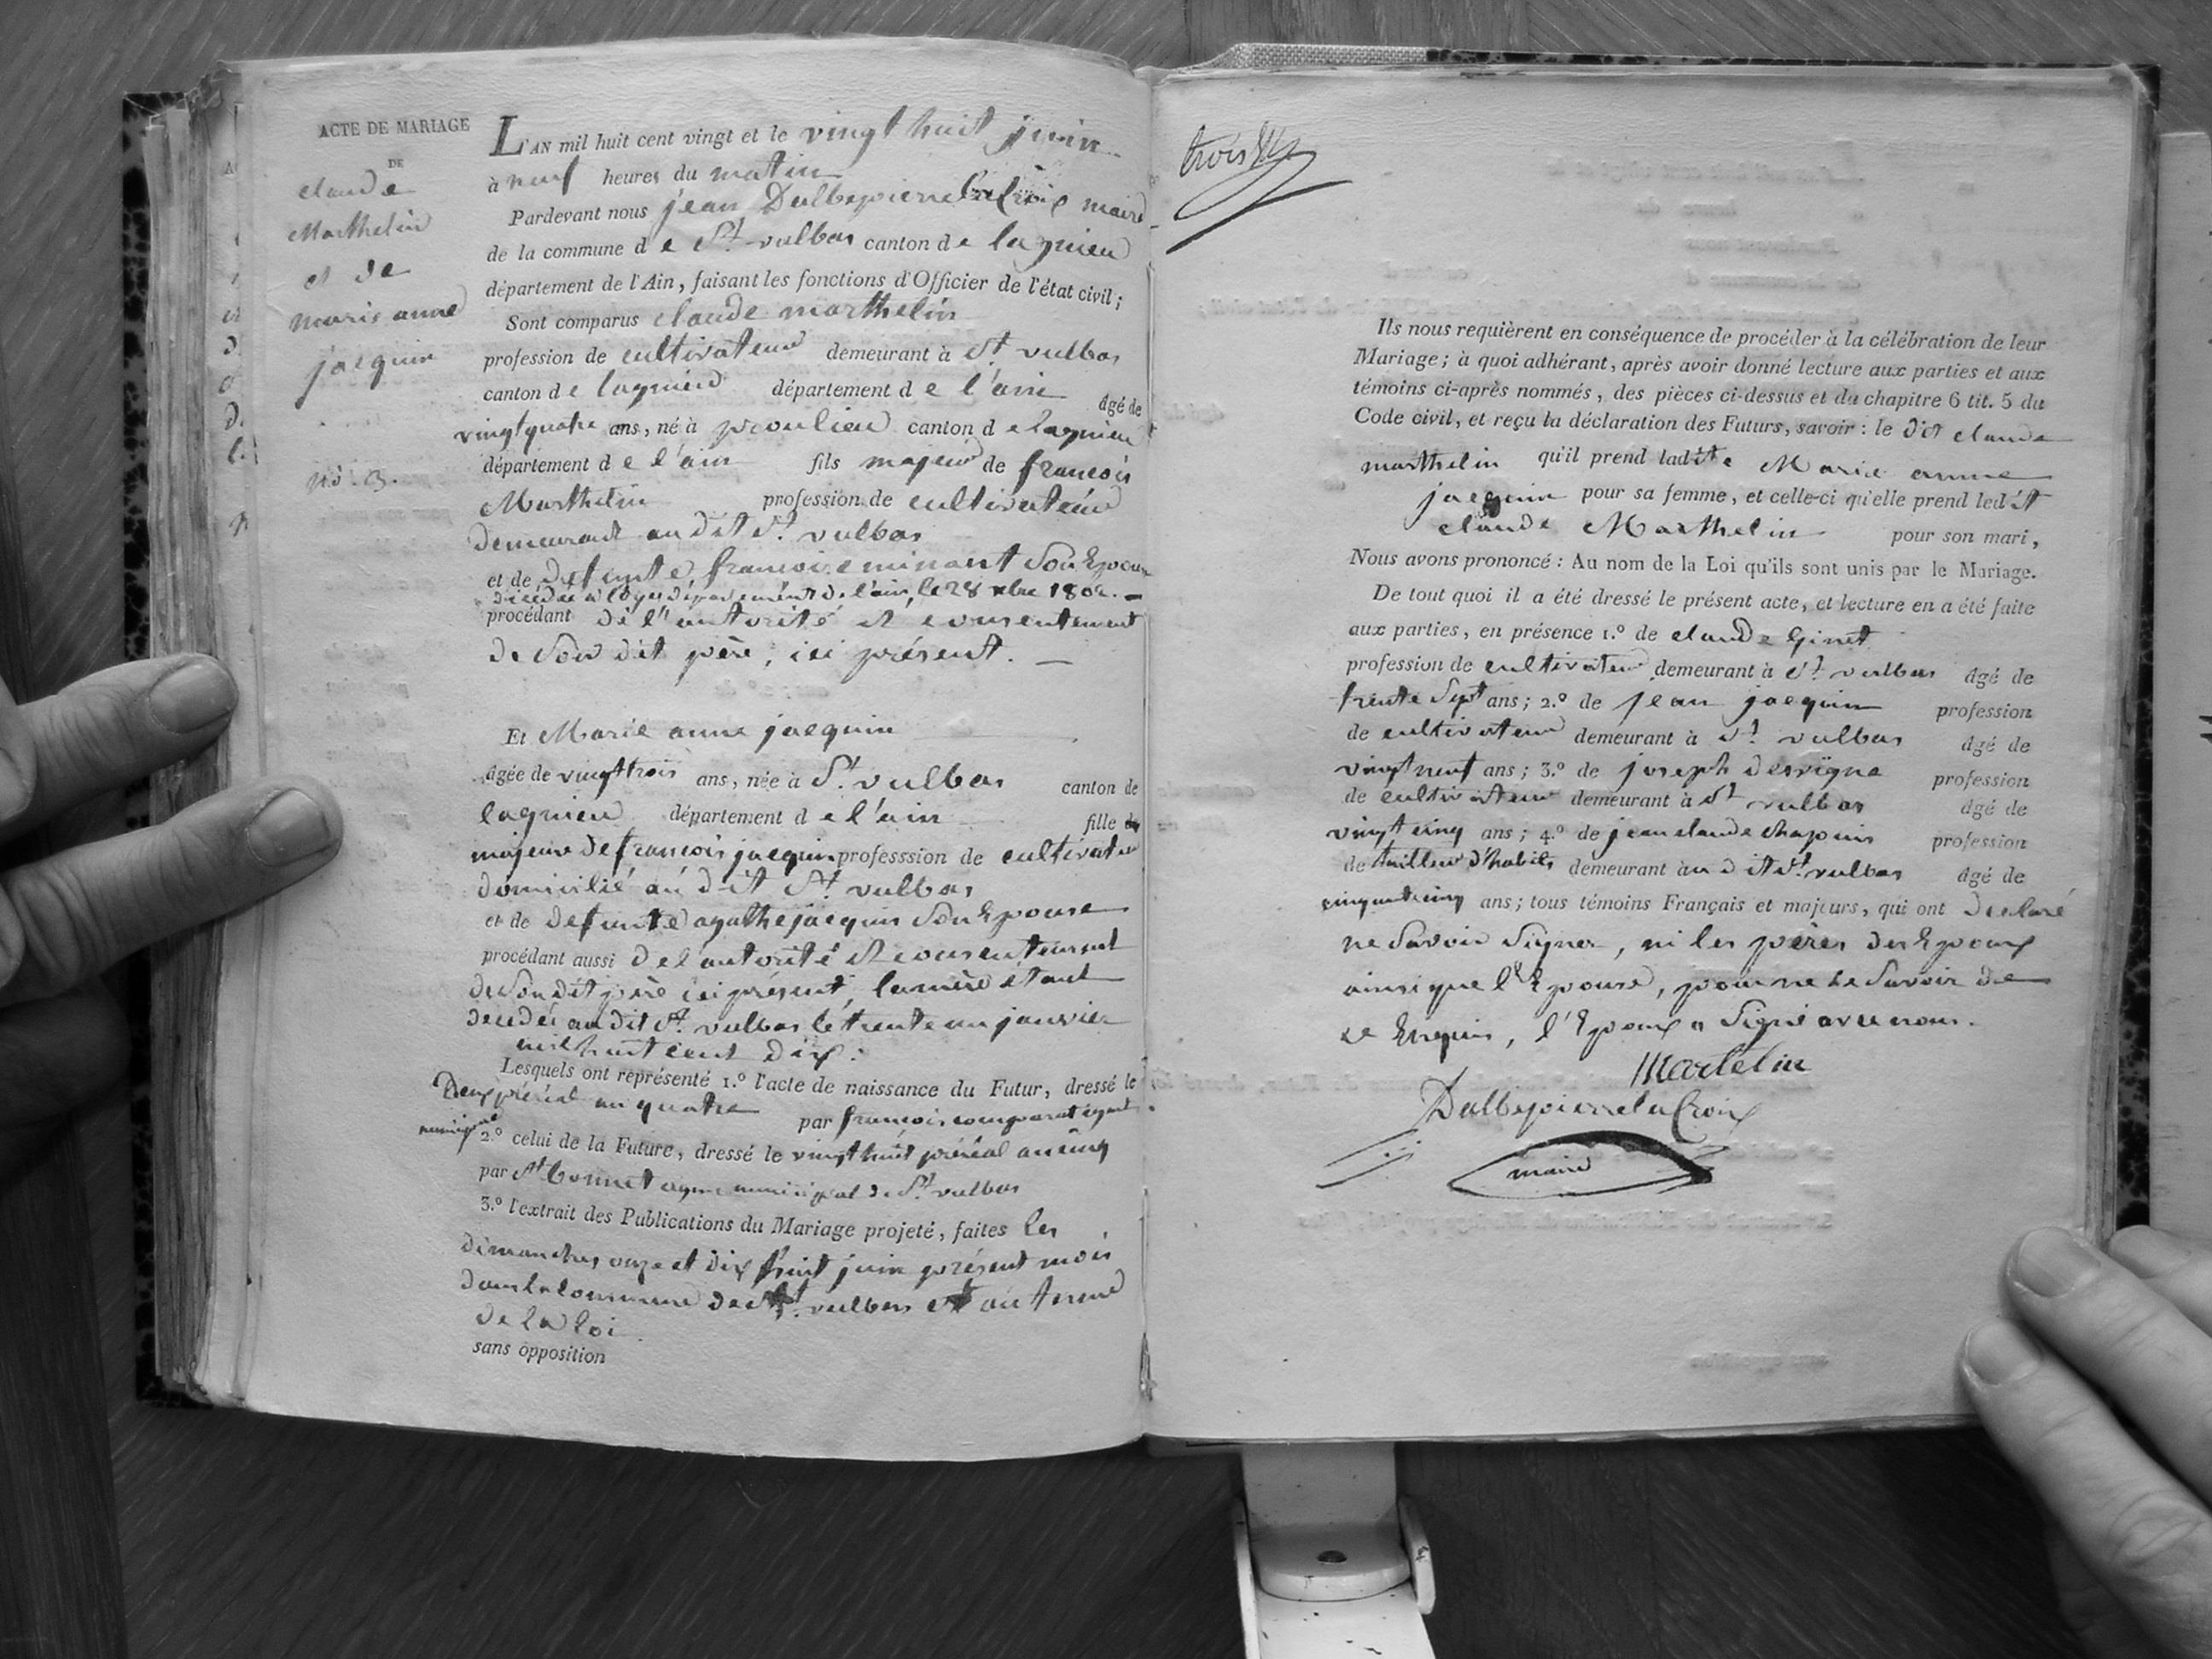 ACTE DE MARIAGE
DE
claude
Marthelin
et de
marie anne
jacquin
no. 3.
L'AN mil huit cent vingt et le vingt huit juin
à neuf heures du matin
Pardevant nous jean Dalbepierrelacroix maire
de la commune d e St. vulbas canton de lagnieu
département de l'Ain, faisant les fonctions d'Officier de l'état civil ;
Sont comparus claude marthelin
profession de cultivateur demeurant à St vulbas
canton de lagnieu département d e l'ain âgé de
vingtquatre ans, né à proulieu canton d e lagnieu
département d e l'ain fils majeur de francois
Marthelin profession de cultivateur
demeurant au dit St. vulbas
et de defunte francoise minant son Epouse
décédée a loyes département de l'ain, le 28 xbre 1802. —
procédant de l'autorité et consentement
de son dit père, ici présent. —
Et Marie anne jacquin
âgée de vingttrois ans, née à St. vulbas canton de
lagnieu département d e l'ain fille de
majeure de francois jacquin professsion de cultivateur
domicilié au dit St vulbas
et de defunte agathe jacquin son Epouse
procédant aussi de l'autorité et consentement
de son dit père ici présent, la mère étant
decedée au dit St. vulbas le trente un janvier
mil huit cent dix.
Lesquels ont représenté 1.º l'acte de naissance du Futur, dressé le
Deux préréal an quatre par francois comparat agent
municipal 2.º celui de la Future, dressé le vingt huit préréal an cinq
par St bonnet agent municipal de St vulbas
3.º l'extrait des Publications du Mariage projeté, faites les
dimanches onze et dix huit juin présent mois
dans la commune de St. vulbas et au terme
de la loi
sans opposition
trois
Ils nous requièrent en conséquence de procéder à la célébration de leur
Mariage ; à quoi adhérant, après avoir donné lecture aux parties et aux
témoins ci-après nommés, des pièces ci-dessus et du chapitre 6 tit. 5 du
Code civil, et reçu la déclaration des Futurs, savoir : le dit claude
marthelin qu'il prend ladite Marie anne
jacquin pour sa femme, et celle-ci qu'elle prend ledit
claude Marthelin pour son mari,
Nous avons prononcé : Au nom de la Loi qu'ils sont unis par le Mariage.
De tout quoi il a été dressé le présent acte, et lecture en a été faite
aux parties, en présence 1.º de claude Ginet
profession de cultivateur demeurant à St vulbas âgé de
trente sept ans ; 2.º de jean jacquin profession
de cultivateur demeurant à St. vulbas âgé de
vingt neuf ans ; 3.º de joseph desvigne profession
de cultivateur demeurant à St vulbas âgé de
vingt cinq ans ; 4.º de jean claude chapuis profession
de tailleur d'habits demeurant au dit St. vulbas âgé de
cinquante cinq ans ; tous témoins Français et majeurs, qui ont declaré
ne savoir signer, ni les pères des Epoux
ainsi que l'Epouse, pour ne le savoir de
ce Enquis, l'Epoux a signé avec nous.
Martelin
Dalbepierrelacroix
maire